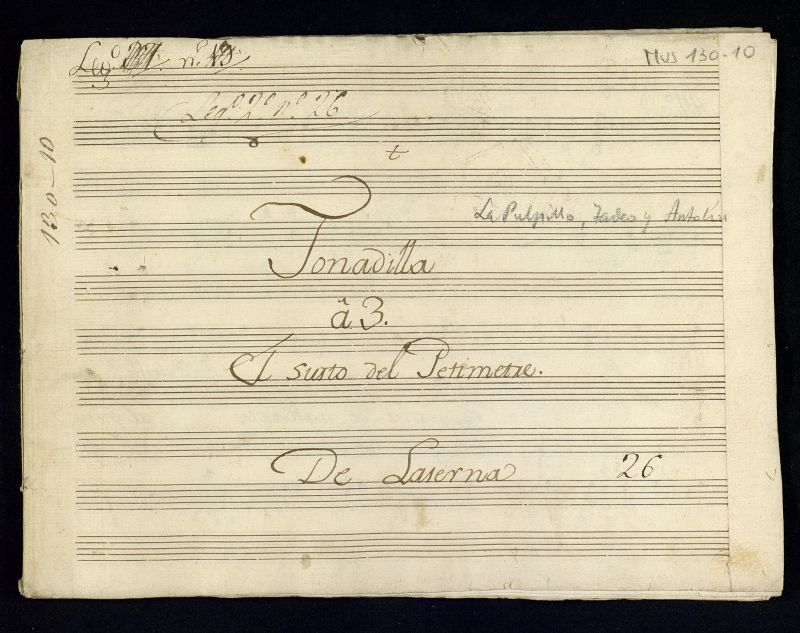 Leg.º 37. n.º 13.
Mus 130-10
Leg.º 2º n.º 26
t
130-10
La Pulpillo, Tadeo y Antolín
Tonadilla
â 3.
El susto del Petimetre.
De Laserna
26